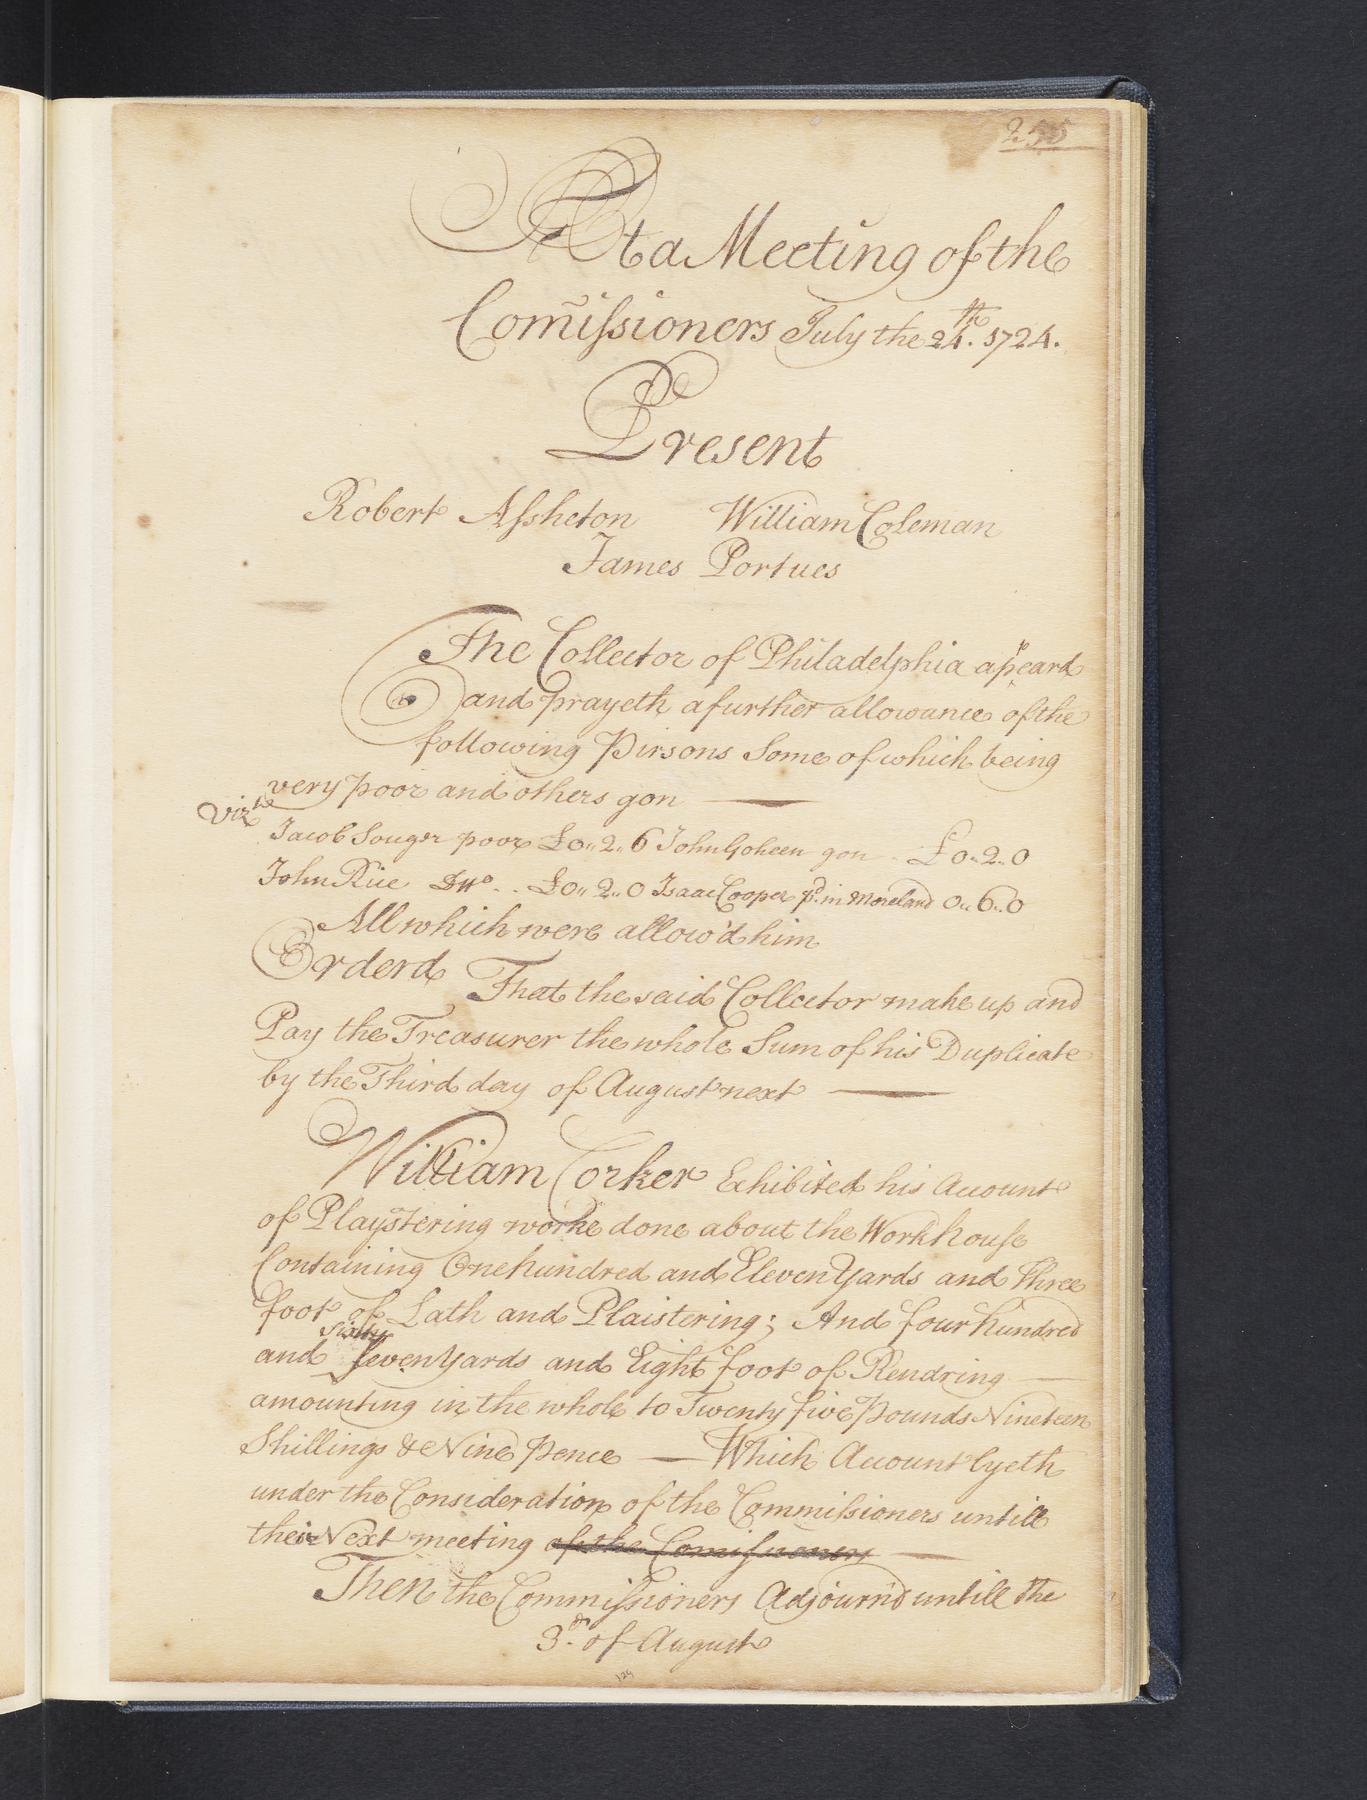 255
At a Meeting of the
Com̃issioners July the 24.th 1724.
Present
Robert Assheton William Coleman
James Portues
The Collector of Philadelphia appeard
and prayeth a further allowance of the
following Pirsons Some of which being
very poor and others gon
Vizt
Jacob Souger poor £0,, 2,, 6 John Goheen gon £0,, 2,, 0
John Rüe Do . . £0,, 2,, 0 Isaac Cooper pd. in Moreland 0,, 6,, 0
All which were allow'd him
Orderd That the said Collector make up and
Pay the Treasurer the whole Sum of his Duplicate
by the Third day of August next
William Corker Exhibited his Account
of Playstering worke done about the Workhouse
Containing One hundred and Eleven Yards and Three
foot of Lath and Plaistering; And four hundred
and Sixty Seven Yards and Eight foot of Rendring
amounting in the whole to Twenty five Pounds Nineteen
Shillings & Nine Pence — Which Account lyeth
under the Consideration of the Commissioners untill
their Next meeting of the Comissioners
Then the Commissioners Adjourn'd untill the
3d. of August
129